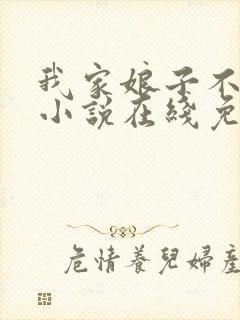 我家娘子不
小説在綫免
危情養兒婦產